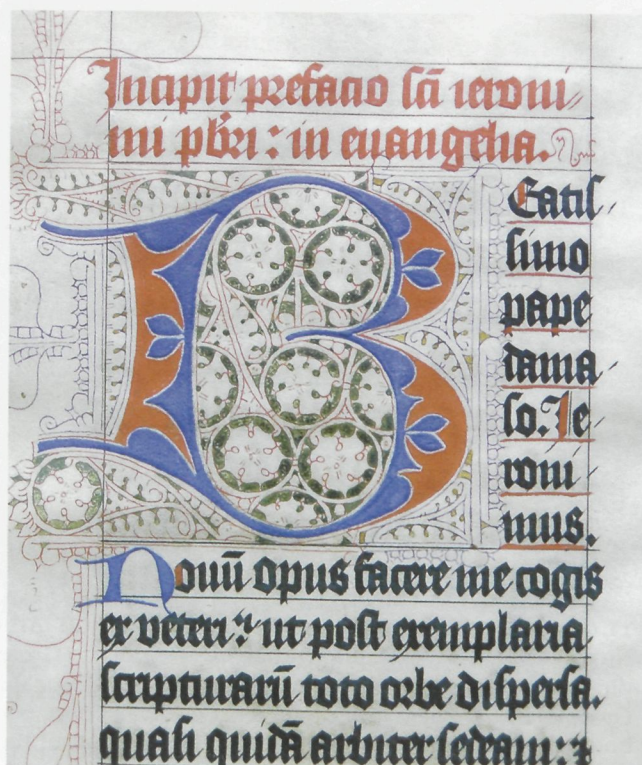 Incipit prefacio sc̄i ieroni//
mi pb̄ri : in euangelia.
B Eatiſ/
ſimo
pape
dama/
ſo. Ie
roni/
mus.
Nouū opus facere me cogis
ex veteri : ut poſt exemplaria
ſcripturarū toto orbe diſperſa.
quaſi quidā arbiter ſedeam : ⁊